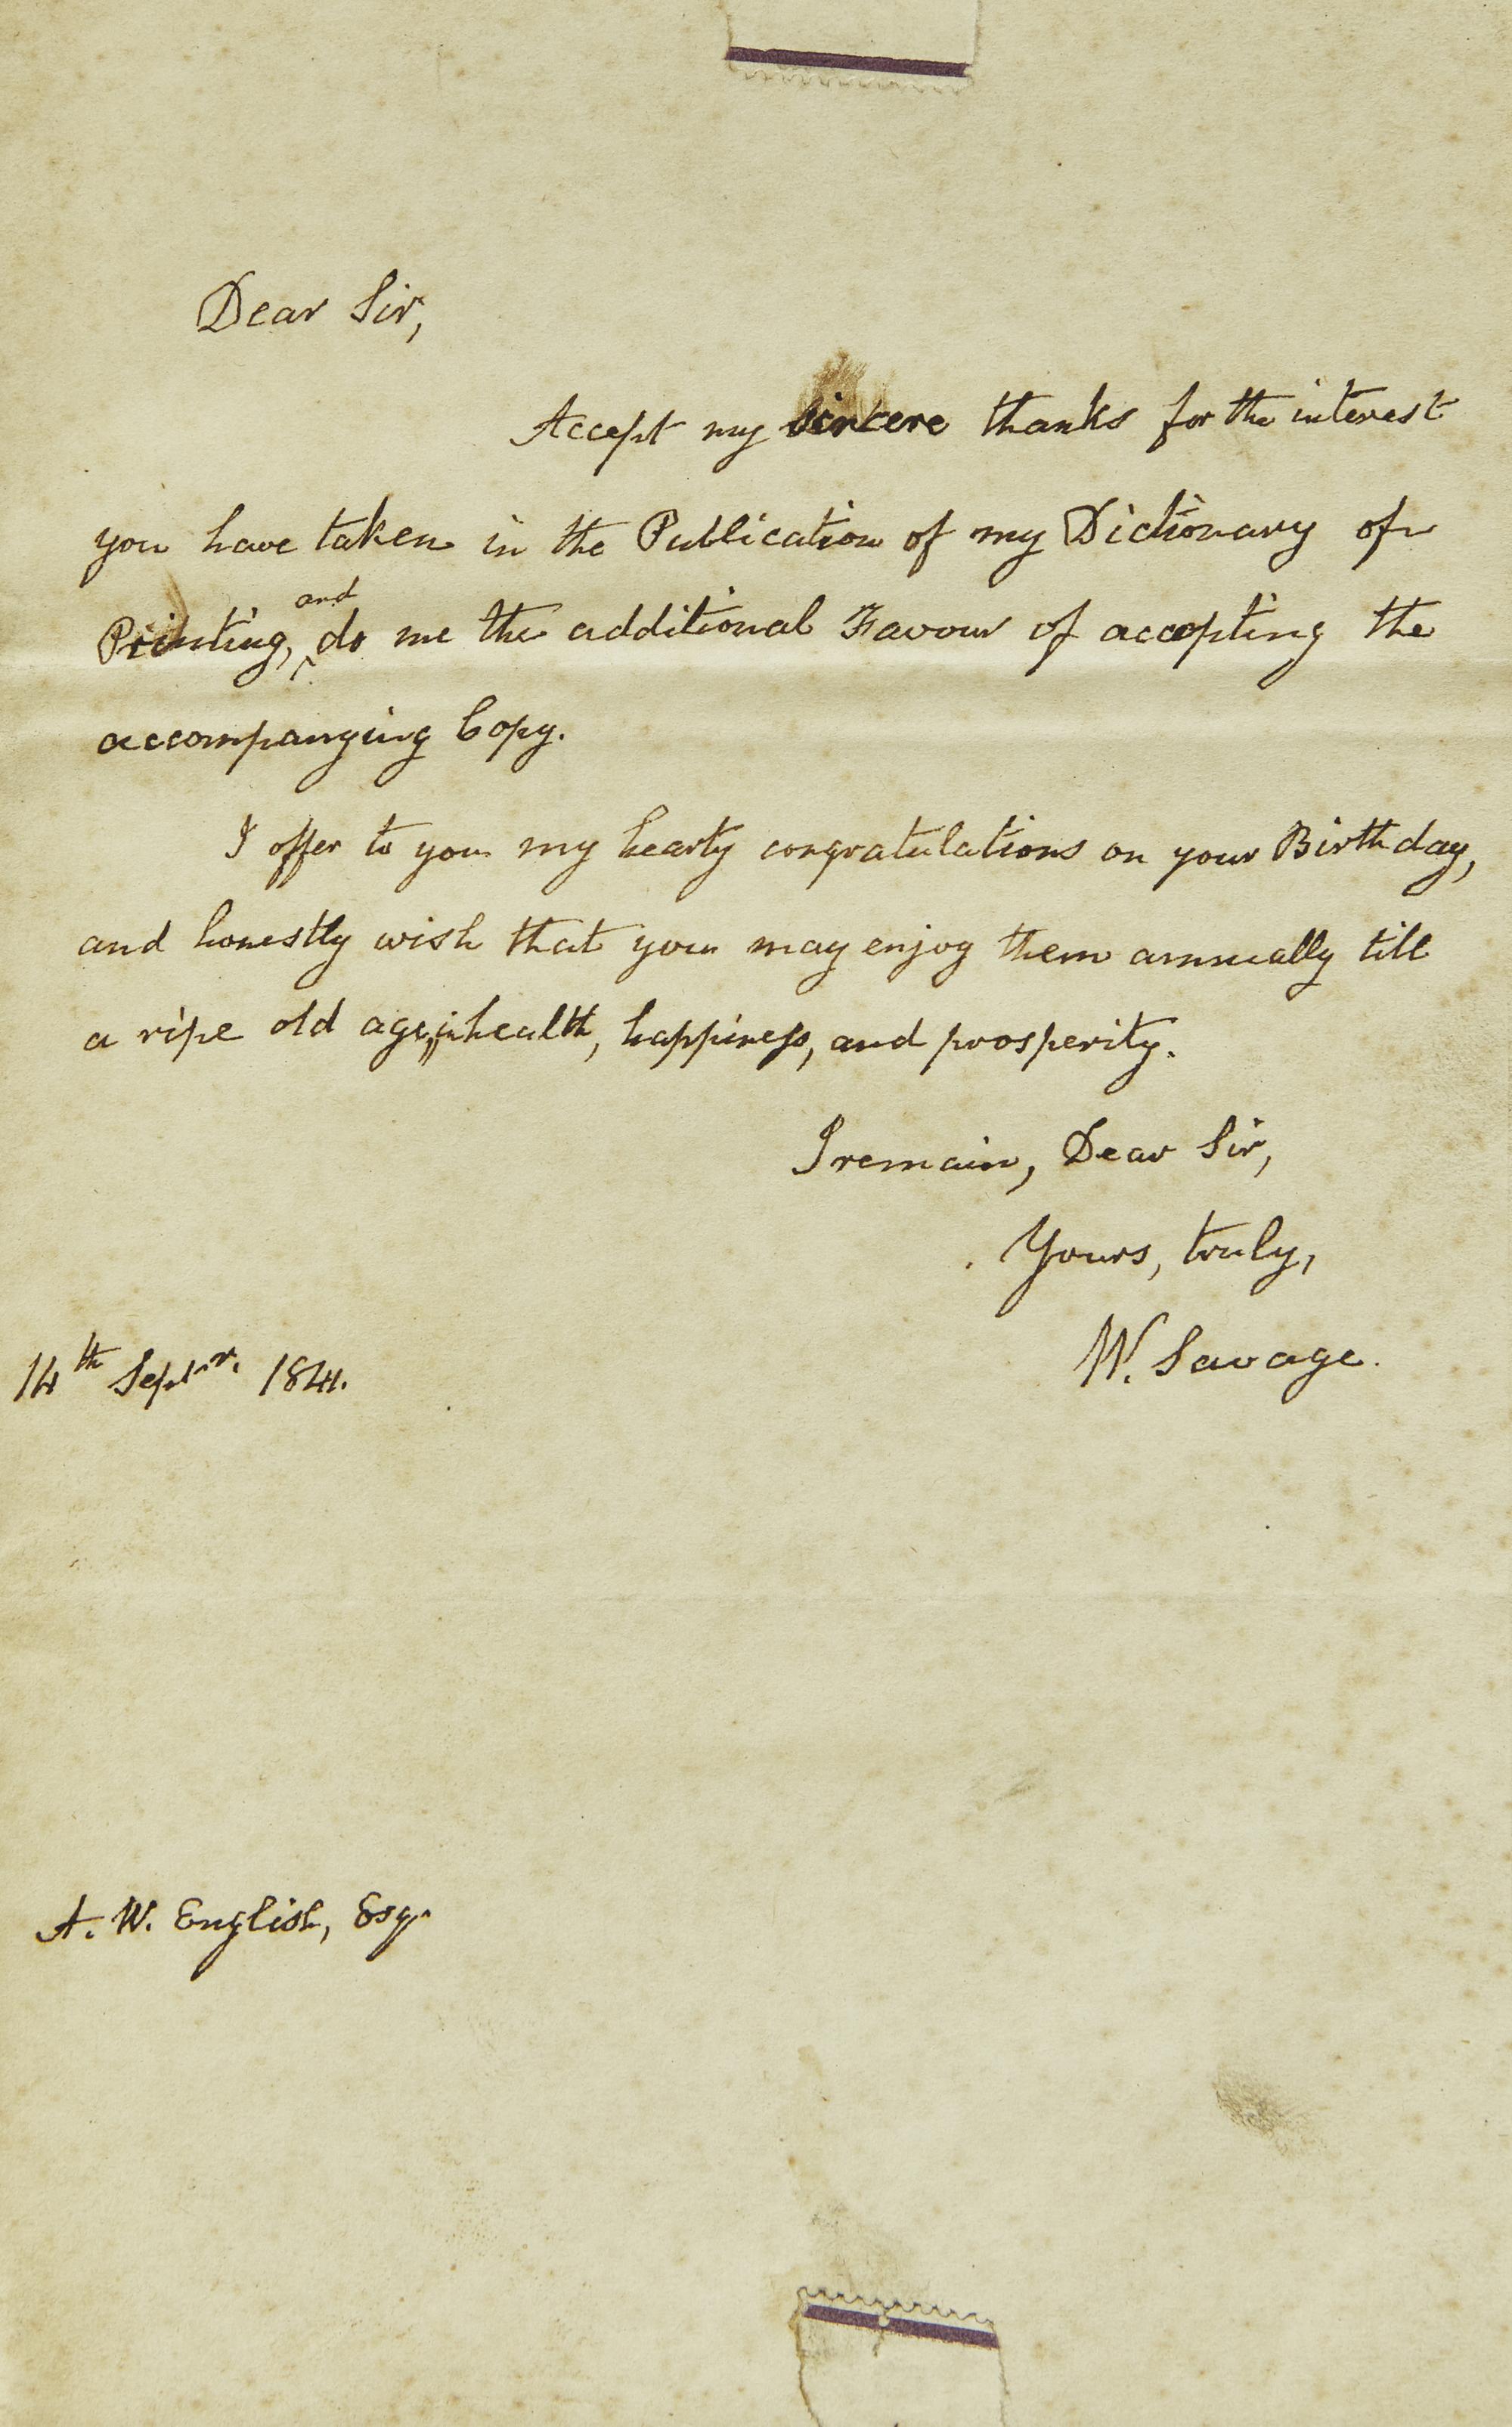 Dear Sir,
Accept my sincere thanks for the interest
you have taken in the Publication of my Dictionary of
Printing, and do me the additional Favour of accepting the
accompanying Copy.
I offer to you my hearty congratulations on your Birthday,
and honestly wish that you may enjoy them annually till
a ripe old age, in health, happiness, and prosperity.
I remain, Dear Sir,
Yours, truly,
W. Savage.
14th Septr. 1841.
A. W. English, Esq.